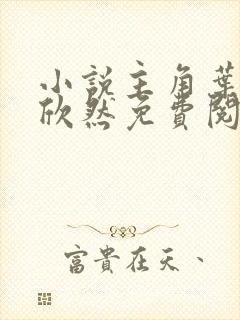 小說主角葉
欣然免費閱
富貴在天、